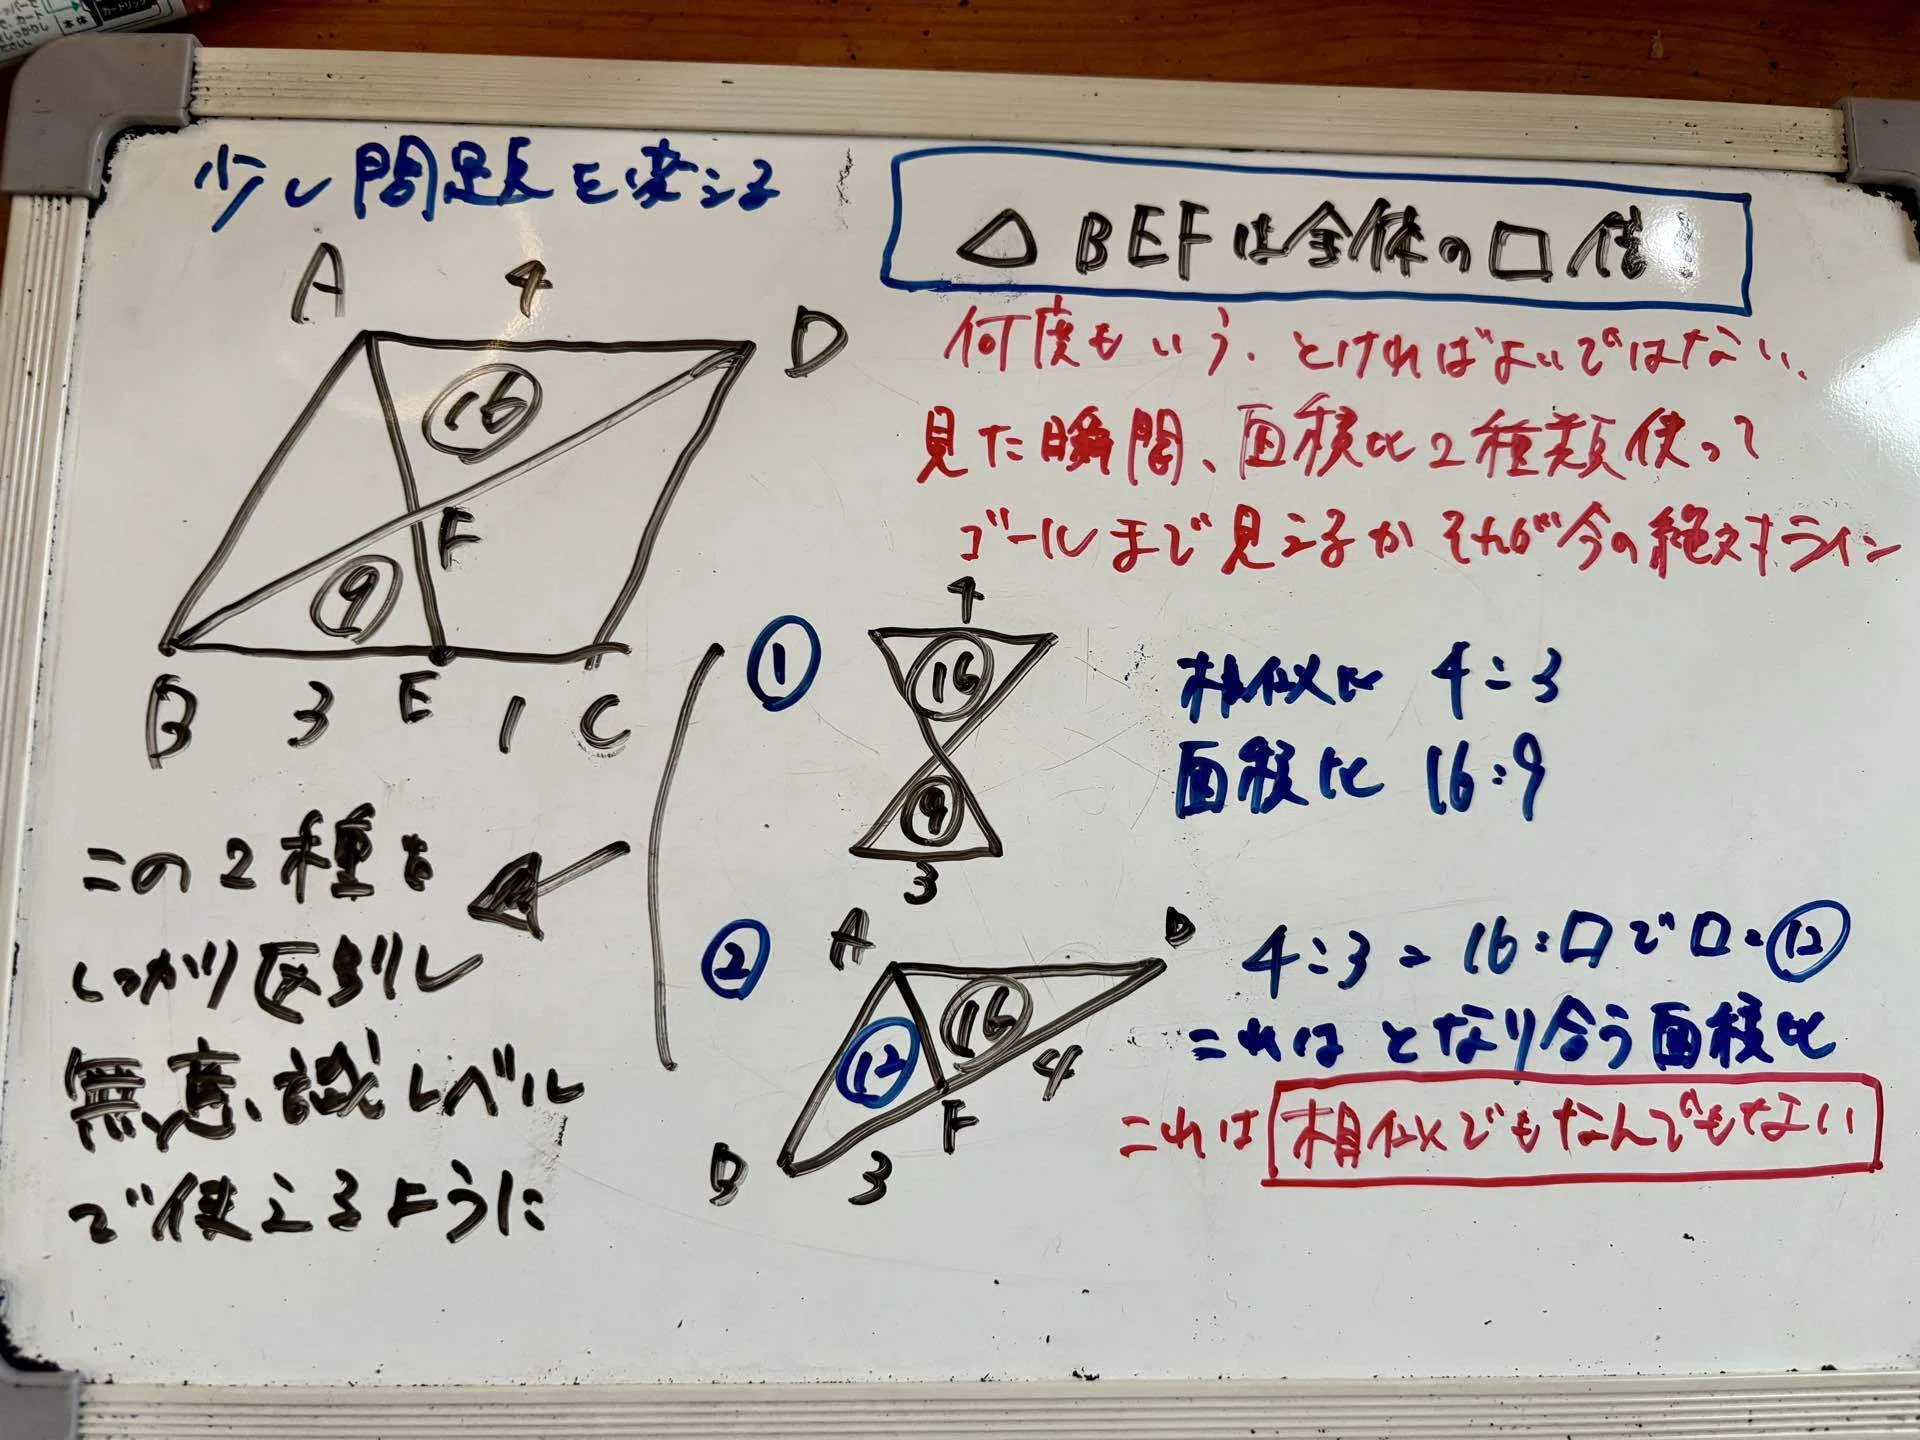 本体
カートリッジ
少し問題を変える
△BEFは全体の□倍!
何度もいう.とければよいではない、
見た瞬間、面積比2種類使って
ゴールまで見えるか それが今の絶対ライン
A 4 D
16
F
9
B 3 E 1 C
①
4
16
9
3
相似比 4:3
面積比 16:9
②
A D
12 16
4
F
B 3
4:3=16:□で□=⑫
これは となり合う面積比
これは 相似でもなんでもない
この2種を
しっかり区別し
無意識レベル
で使えるように